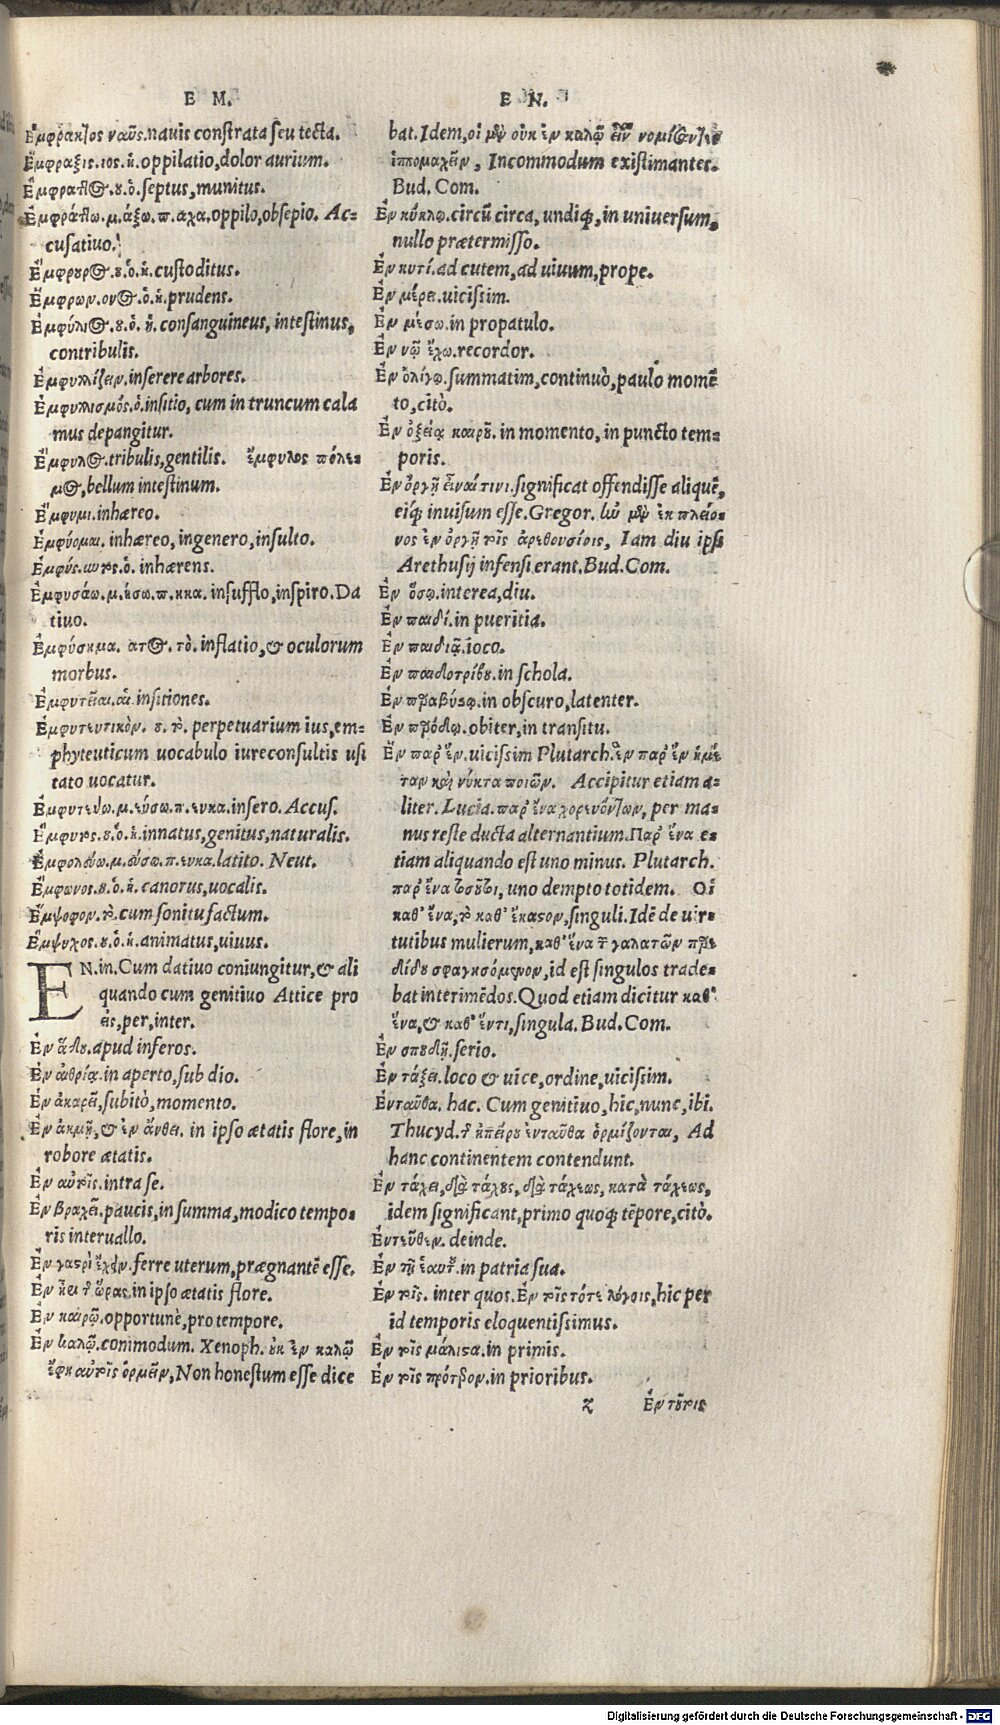 E M.
Ἔμφρακτος ναῦς. navis constrata seu tecta.
Ἔμφραξις. ιος. ἡ. oppilatio, dolor aurium.
Ἔμφρακτος. ου. ὁ. septus, munitus.
Ἐμφράττω. μ. άξω. π. αχα. oppilo, obsepio. Ac-
cusatiuo.
Ἔμφρουρος. ου. ὁ. ἡ. custoditus.
Ἔμφρων. ονος. ὁ. ἡ. prudens.
Ἐμφύλιος. ου. ὁ. ἡ. consanguineus, intestinus,
contribulis.
Ἐμφυλλίζειν. inserere arbores.
Ἐμφυλλισμός. ὁ. insitio, cum in truncum cala
mus depangitur.
Ἔμφυλος. tribulis, gentilis. ἔμφυλος πόλε-
μος, bellum intestinum.
Ἔμφυμι. inhæreo.
Ἐμφύομαι. inhæreo, ingenero, insulto.
Ἐμφύς. ὁ. inhærens.
Ἐμφυσάω. μ. ήσω. π. ηκα. insufflo, inspiro. Da
tiuo.
Ἐμφύσημα. ατος. τό. inflatio, & oculorum
morbus.
Ἐμφυτεῖαι. αἱ. insitiones.
Ἐμφυτευτικὸν. ου. τό. perpetuarium ius, em-
phyteuticum uocabulo iureconsultis usi
tato uocatur.
Ἐμφυτεύω. μ. εύσω. π. ευκα. insero. Accus.
Ἔμφυτος. ου. ὁ. ἡ. innatus, genitus, naturalis.
Ἐμφολεύω. μ. εύσω. π. ευκα. latito. Neut.
Ἔμφωνος. ου. ὁ. ἡ. canorus, uocalis.
Ἔμψοφον. τό. cum sonitu factum.
Ἔμψυχος. ου. ὁ. ἡ. animatus, uiuus.
EN. in. Cum datiuo coniungitur, & ali
quando cum genitiuo Attice pro
εἰς, per, inter.
Ἐν ᾅδου. apud inferos.
Ἐν αἰθρίᾳ. in aperto, sub dio.
Ἐν ἀκαρεῖ, subitò, momento.
Ἐν ἀκμῇ, & ἐν ἄνθει. in ipso ætatis flore, in
robore ætatis.
Ἐν αὑτοῖς. intra se.
Ἐν βραχεῖ. paucis, in summa, modico tempo-
ris interuallo.
Ἐν γαστρὶ ἔχειν. ferre uterum, prægnantē esse.
Ἐν ἦει τ ὥρας. in ipso ætatis flore.
Ἐν καιρῷ. opportunè, pro tempore.
Ἐν καλῷ. commodum. Xenoph. οὐκ ἐν καλῷ
ἔφη αὐτοῖς ὁρμεῖν, Non honestum esse dice
E N.
bat. Idem, οἱ μὲν οὐκ ἐν καλῷ εἶναι νομίζοντες
ἱππομαχεῖν, Incommodum existimantes.
Bud. Com.
Ἐν κύκλῳ. circū circa, undiq;, in uniuersum,
nullo prætermisso.
Ἐν κυτί. ad cutem, ad uiuum, prope.
Ἐν μέρει. uicissim.
Ἐν μέσῳ. in propatulo.
Ἐν νῷ ἔχω. recordor.
Ἐν ὀλίγῳ. summatim, continuò, paulo momē
to, citò.
Ἐν ὀξείᾳ καιροῦ. in momento, in puncto tem-
poris.
Ἐν ὀργῇ εἶναί τινι. significat offendisse aliquē,
eiq; inuisum esse. Gregor. ἐκ πλείο-
νος ἐν ὀργῇ τοῖς ἀρεθουσίοις, Iam diu ipsi
Arethusij infensi erant. Bud. Com.
Ἐν ὅσῳ. interea, diu.
Ἐν παιδί. in pueritia.
Ἐν παιδιᾷ. ioco.
Ἐν παιδοτρίβου. in schola.
Ἐν παραβύστῳ. in obscuro, latenter.
Ἐν παρόδῳ. obiter, in transitu.
Ἓν παρ᾽ ἕν. uicissim Plutarch. ἓν παρ᾽ ἓν ἡμέ
ραν καὶ νύκτα ποιῶν. Accipitur etiam a-
liter. Lucia. παρ᾽ ἕνα χορευόντων, per ma-
nus reste ducta alternantium. Παρ᾽ ἕνα e-
tiam aliquando est uno minus. Plutarch.
παρ᾽ ἕνα τοσοῦτοι, uno dempto totidem. Οἱ
καθ᾽ ἕνα, τὸ καθ᾽ ἕκαστον, singuli. Idē de uir-
tutibus mulierum, καθ᾽ ἕνα τ γαλατῶν παρε
δίδου σφαγησόμενον, id est singulos trade-
bat interimēdos. Quod etiam dicitur καθ᾽
ἕνα, & καθ᾽ ἕντι, singula. Bud. Com.
Ἐν σπουδῇ. serio.
Ἐν τάξει. loco & uice, ordine, uicissim.
Ἐνταῦθα. hac. Cum genitiuo, hic, nunc, ibi.
Thucyd. τ ἠπείρου ἐνταῦθα ὁρμίζονται, Ad
hanc continentem contendunt.
Ἐν τάχει, διὰ τάχους, διὰ τάχεως, κατὰ τάχεως,
idem significant, primo quoq; tēpore, citò.
Ἐντεῦθεν. deinde.
Ἐν τῇ ἑαυτοῦ. in patria sua.
Ἐν τοῖς. inter quos. Ἐν τοῖς τότε λόγοις, hic per
id temporis eloquentissimus.
Ἐν τοῖς μάλιστα. in primis.
Ἐν τοῖς πρότερον. in prioribus.
z Ἐν τούτοις
Digitalisierung gefördert durch die Deutsche Forschungsgemeinschaft - DFG